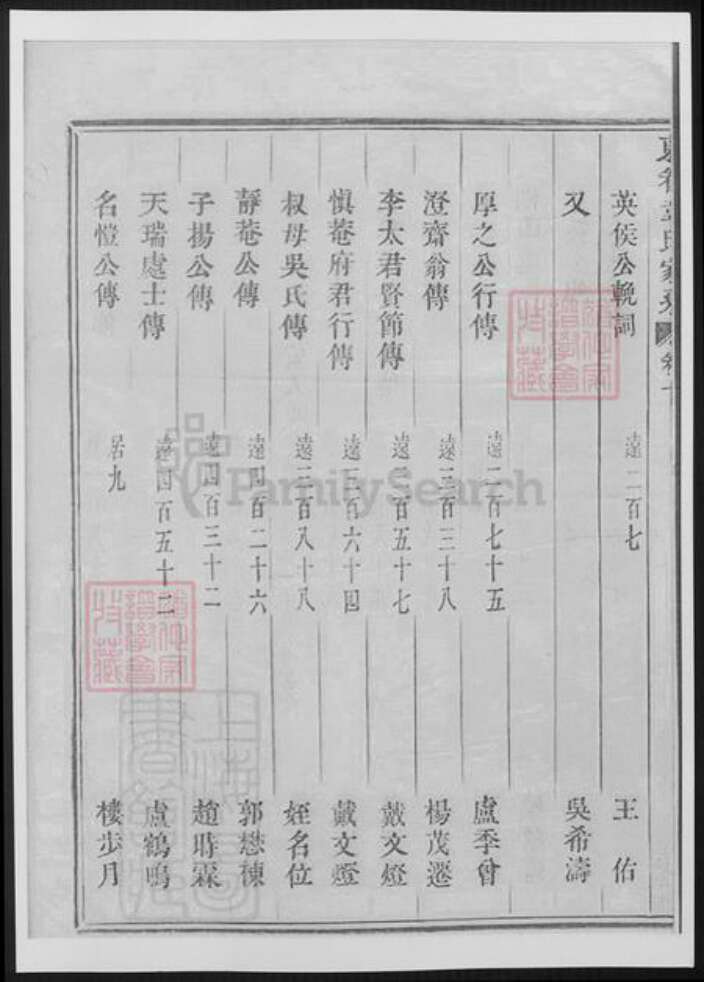 氏家乘 卷十
英侯公輓詞 遠二百七 王佑
又 吳希濤
厚之公行傳 遠二百七十五 盧季曾
澄齋翁傳 遠三百三十八 楊茂遷
李太君賢節傳 遠三百五十七 戴文燈
慎菴府君行傳 遠三百六十四 戴文燈
叔母吳氏傳 遠三百八十八 姪名位
靜菴公傳 遠四百二十六 郭懋棟
子揚公傳 遠四百三十二 趙時霖
天瑞處士傳 遠四百五十二 盧鶴鳴
名愷公傳 居九 樓步月
FamilySearch
譜學會
特藏
譜學會
特藏
上海圖書館藏